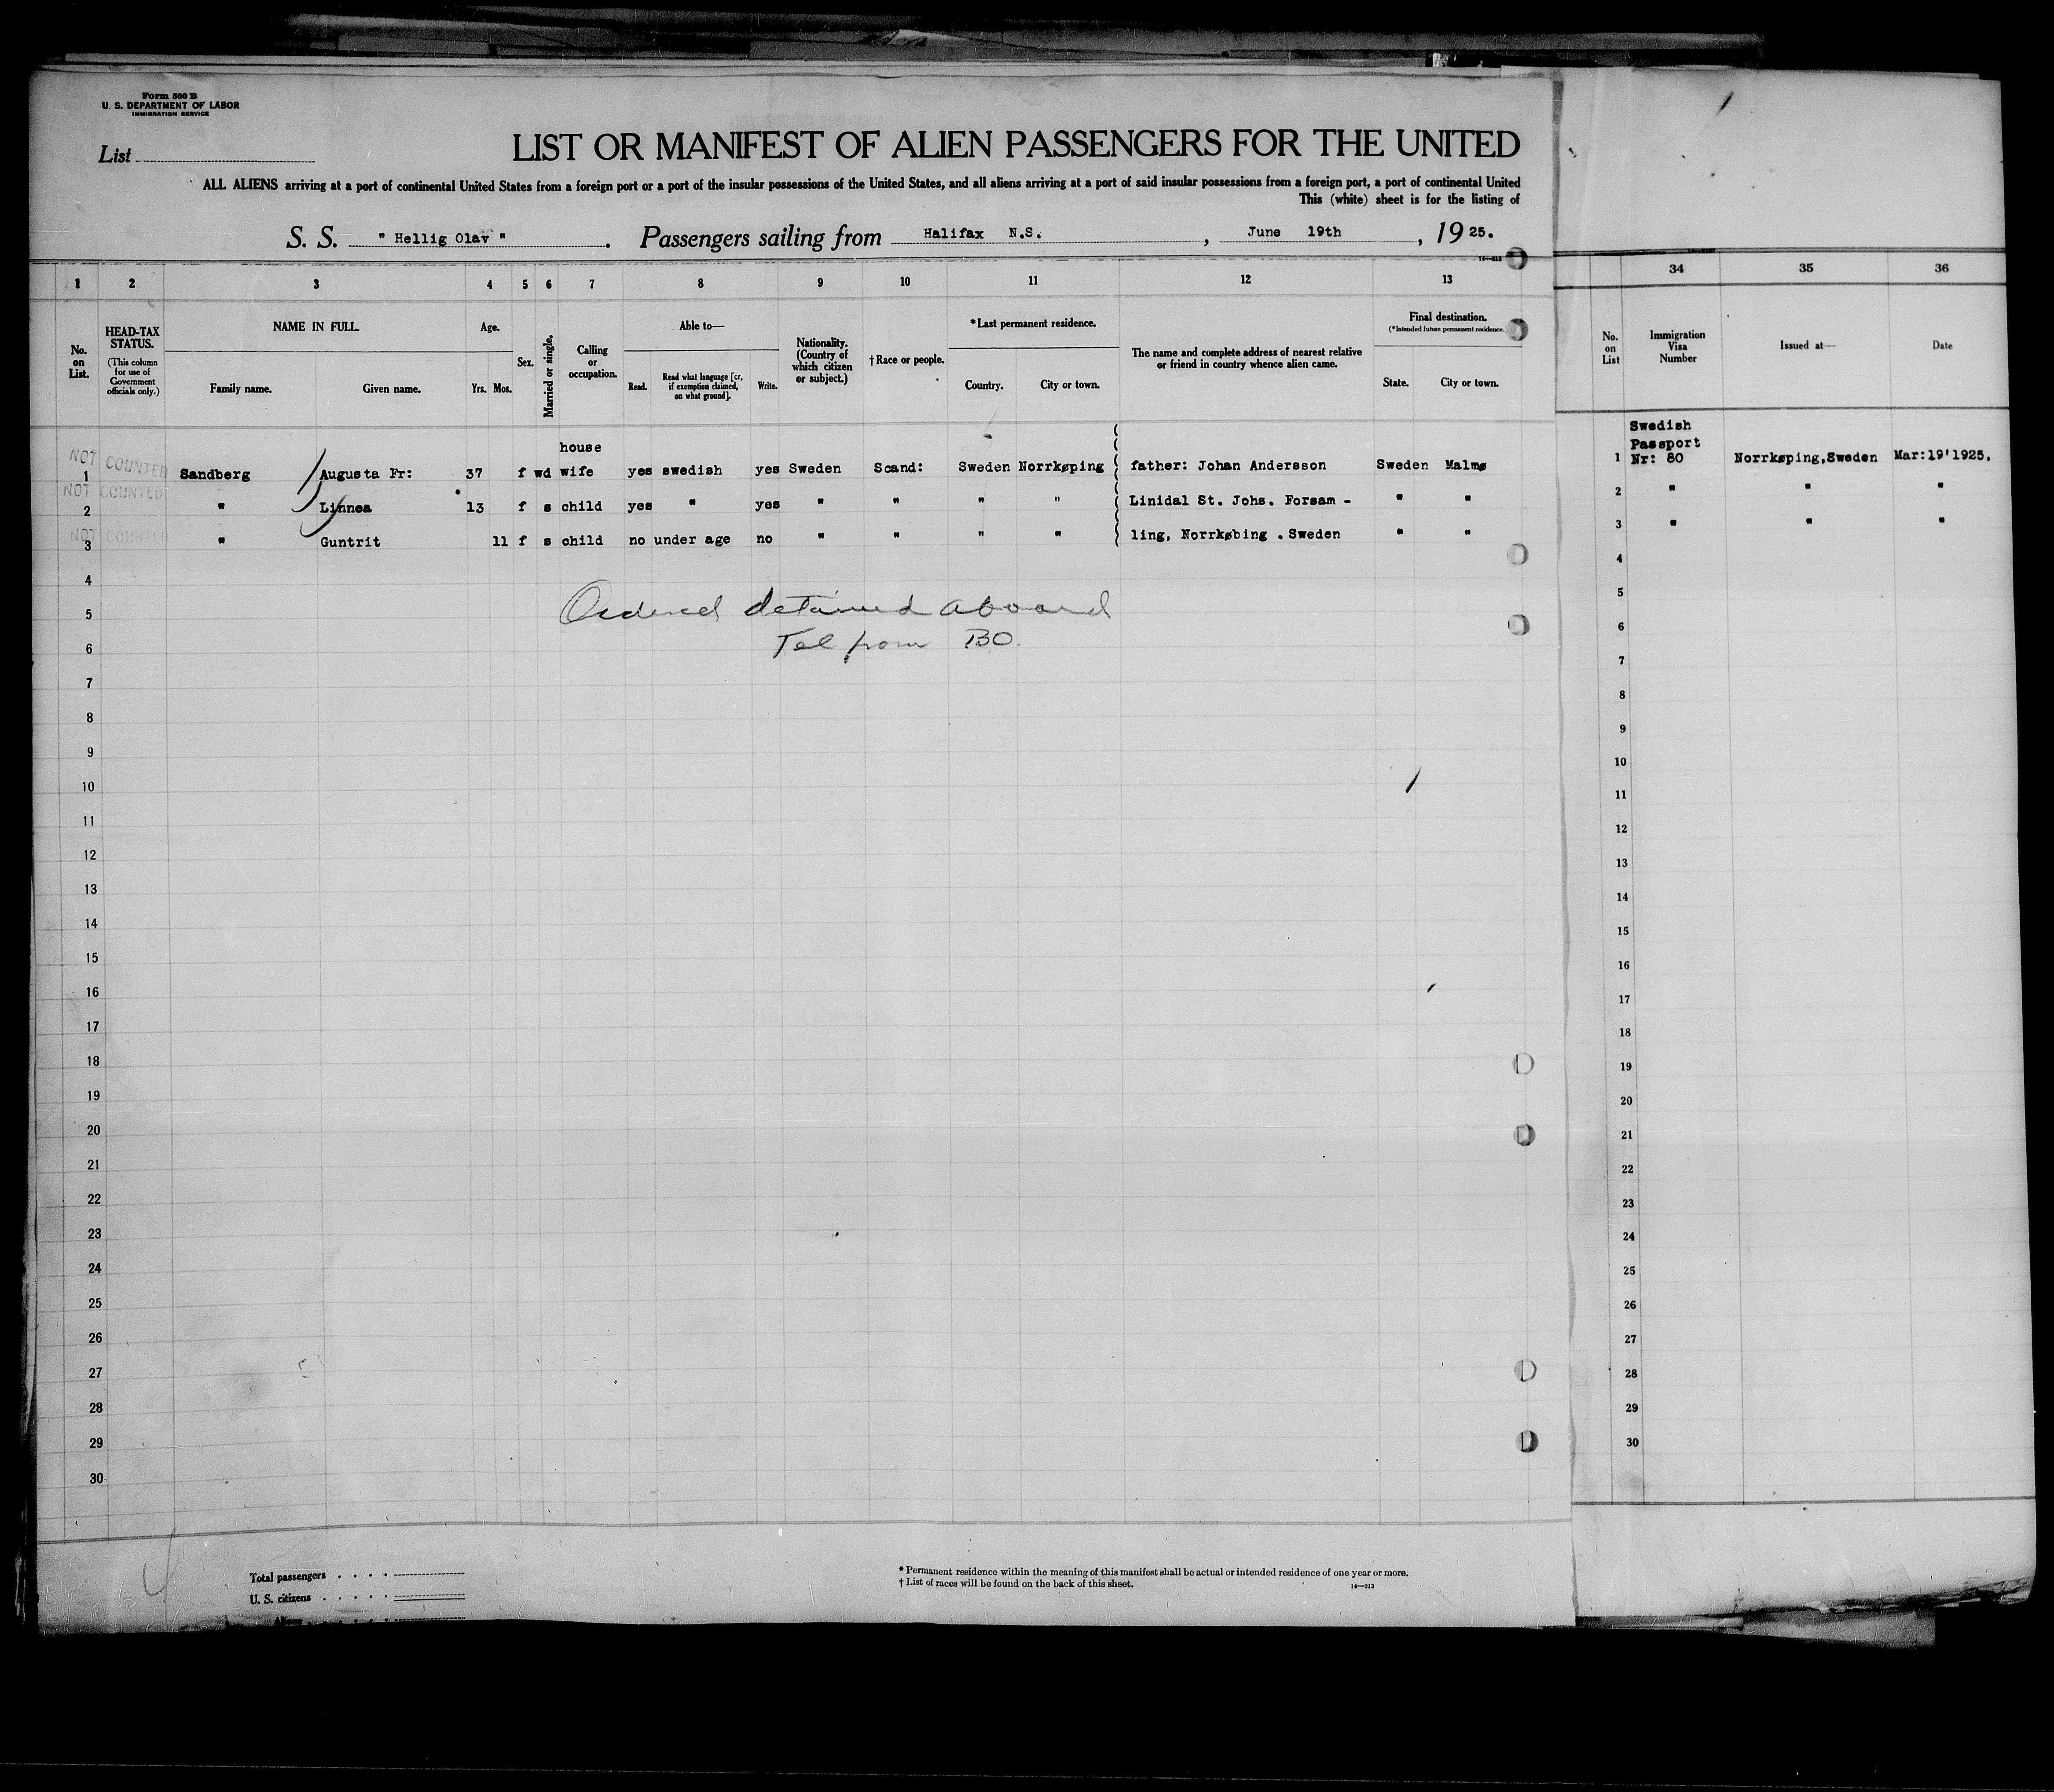 Form 500 B
U. S. DEPARTMENT OF LABOR
IMMIGRATION SERVICE
List
LIST OR MANIFEST OF ALIEN PASSENGERS FOR THE UNITED
ALL ALIENS arriving at a port of continental United States from a foreign port or a port of the insular possessions of the United States, and all aliens arriving at a port of said insular possessions from a foreign port, a port of continental United
This (white) sheet is for the listing of
S. S. " Hellig Olav " . Passengers sailing from Halifax N.S. , June 19th , 19 25.
14—213
1 2 3 4 5 6 7 8 9 10 11 12 13 34 35 36
No. on List.
HEAD-TAX STATUS.
(This column for use of Government officials only.)
NAME IN FULL.
Family name. Given name.
Age.
Yrs. Mos.
Sex.
Married or single.
Calling or occupation.
Able to—
Read. Read what language [or, if exemption claimed, on what ground]. Write.
Nationality. (Country of which citizen or subject.)
†Race or people.
*Last permanent residence.
Country. City or town.
The name and complete address of nearest relative or friend in country whence alien came.
Final destination.
(*Intended future permanent residence.)
State. City or town.
No. on List
Immigration Visa Number
Issued at—
Date
NOT COUNTED
1 Sandberg Augusta Fr: 37 f wd house wife yes swedish yes Sweden Scand: Sweden Norrkøping father: Johan Andersson Sweden Malmø 1 Swedish Passport Nr: 80 Norrkøping,Sweden Mar:19'1925,
NOT COUNTED
2 " Linnea 13 f s child yes " yes " " " " Linidal St. Johs. Forsam - " " 2 " " "
NOT COUNTED
3 " Guntrit 11 f s child no under age no " " " " ling, Norrkøbing . Sweden " " 3 " " "
4 4
5 Ordered detained aboard 5
6 Tel from BO. 6
7 7
8 8
9 9
10 10
11 11
12 12
13 13
14 14
15 15
16 16
17 17
18 18
19 19
20 20
21 21
22 22
23 23
24 24
25 25
26 26
27 27
28 28
29 29
30 30
Total passengers
U. S. citizens
Aliens
* Permanent residence within the meaning of this manifest shall be actual or intended residence of one year or more.
† List of races will be found on the back of this sheet.
14—213